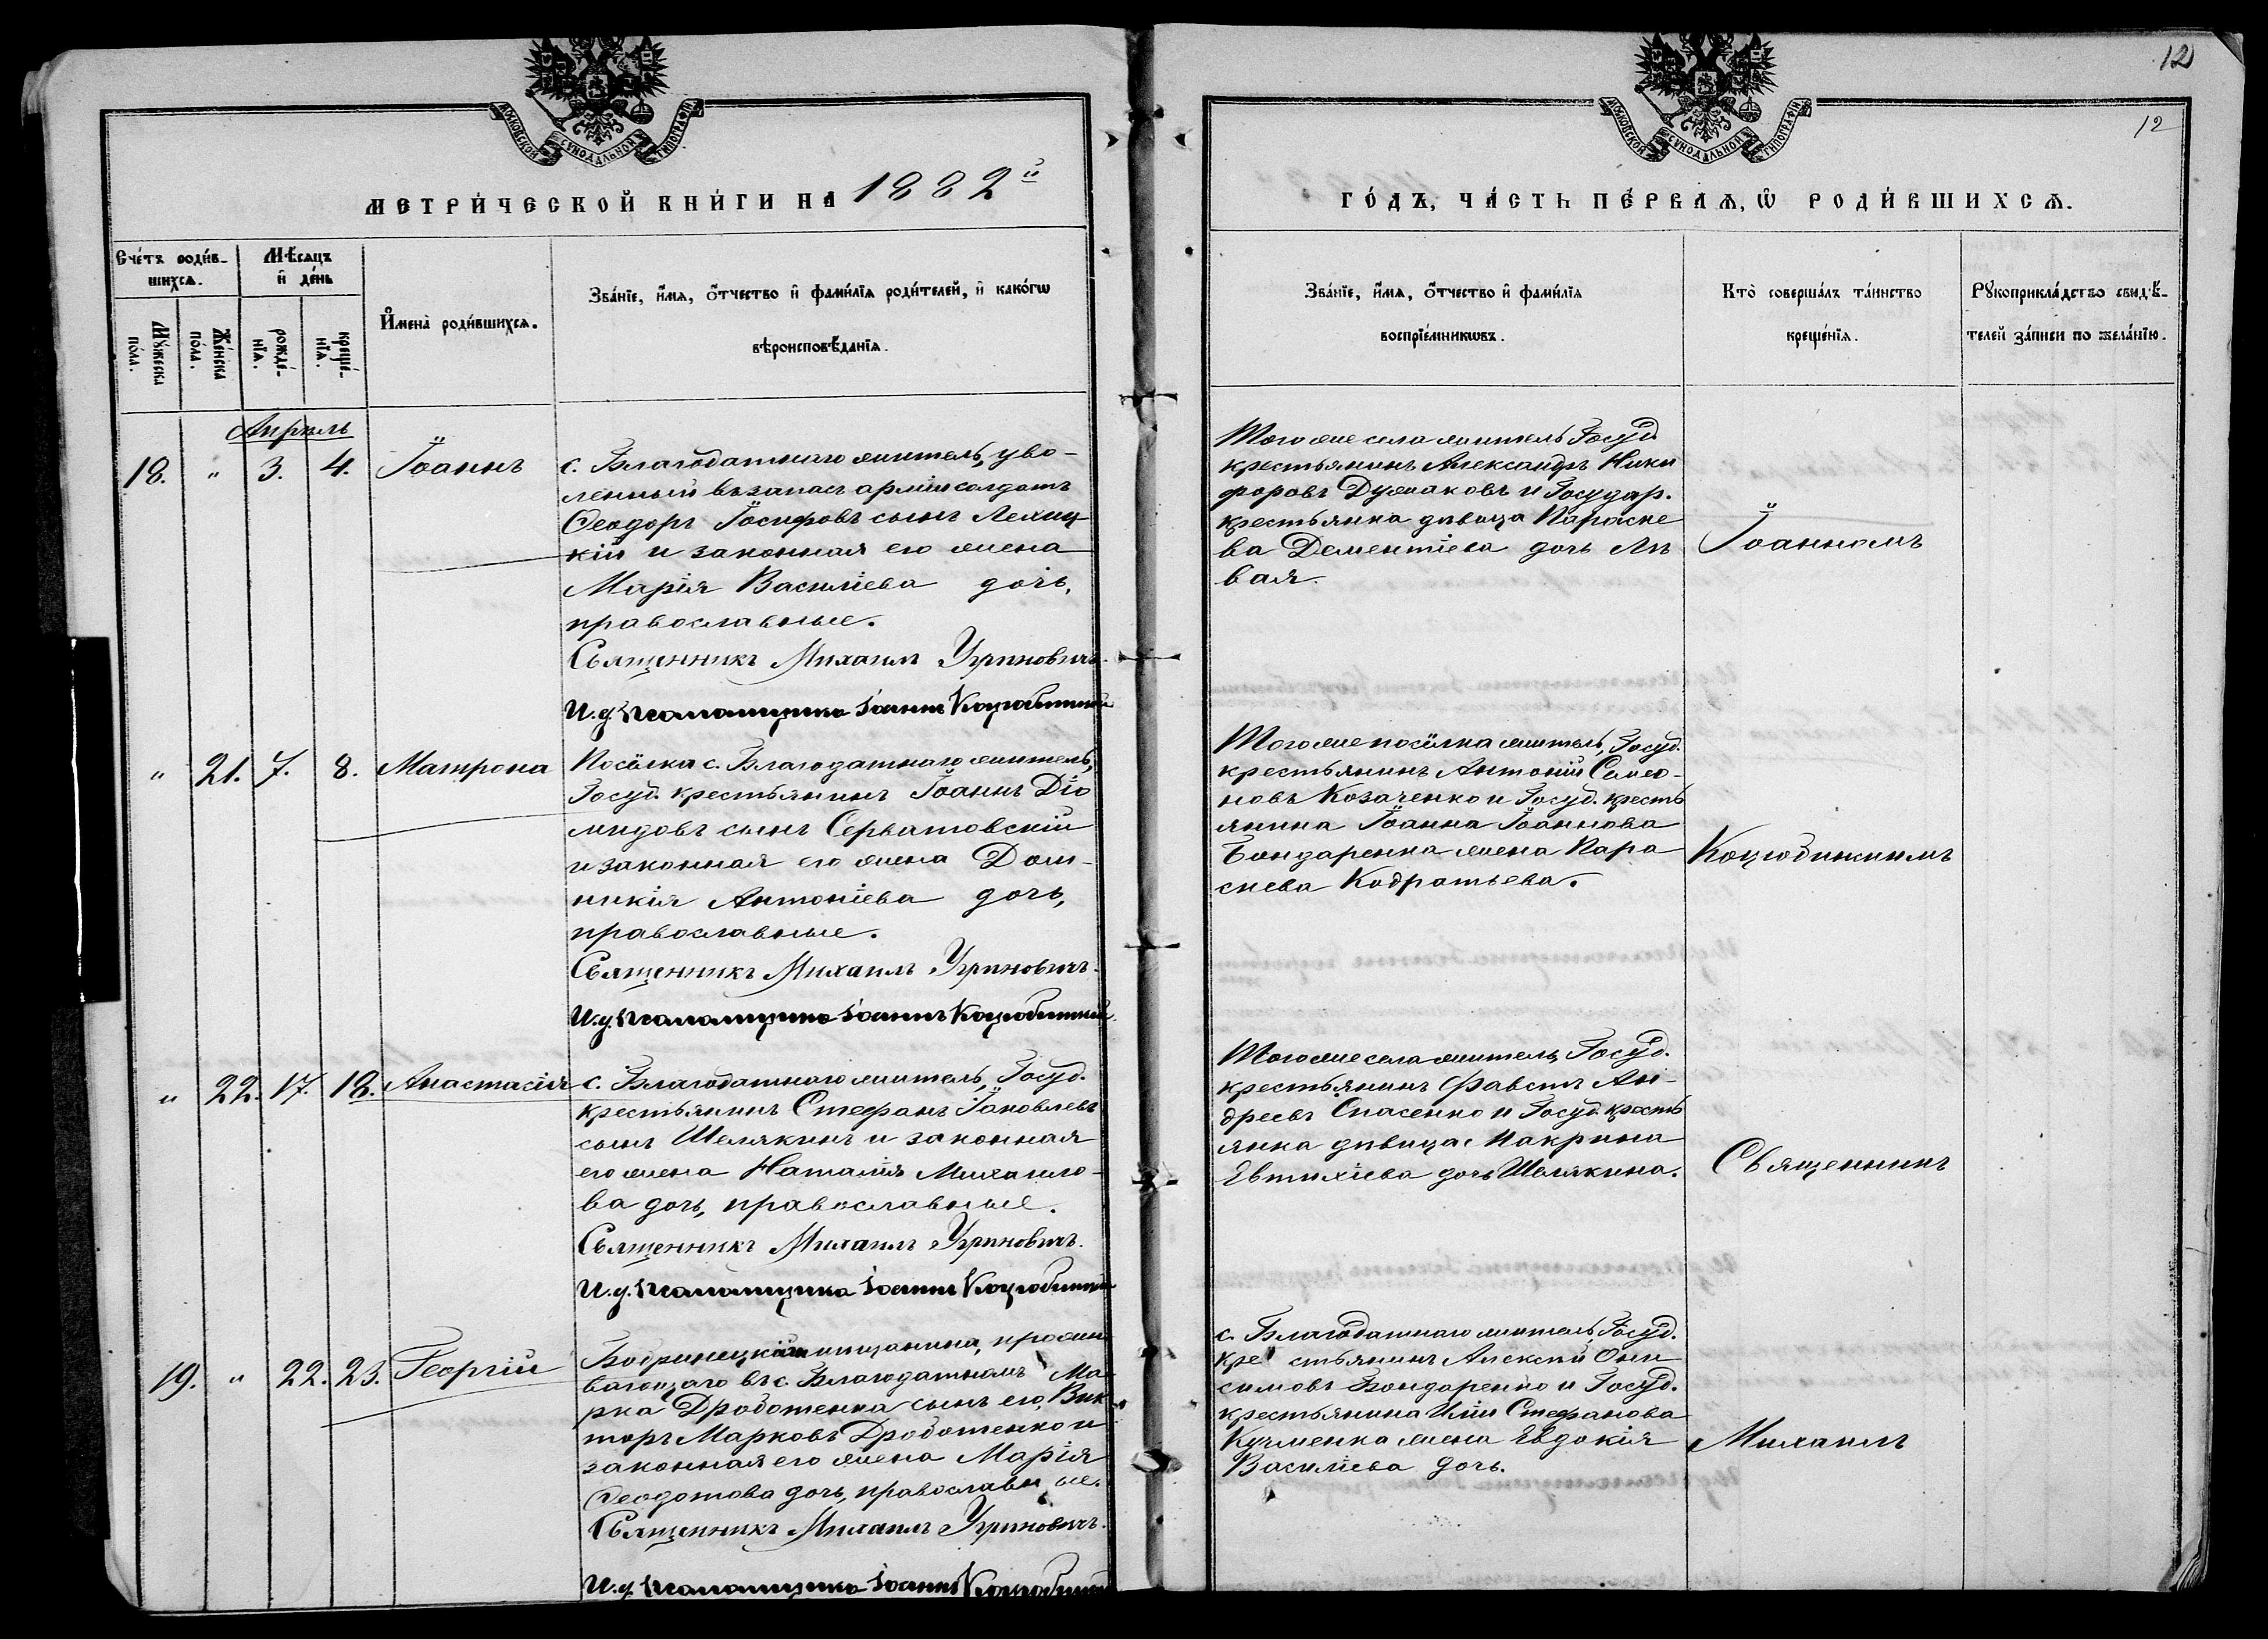 12
12
МОСКОВСКОЙ СѴНОДАЛЬНОЙ ТИПОГРАФІИ
МОСКОВСКОЙ СѴНОДАЛЬНОЙ ТИПОГРАФІИ
МЕТРИ́ЧЕСКОЙ КНИ́ГИ НА 1882й
ГО́ДЪ, ЧА́СТЬ ПЕ́РВАѦ, Ѡ РОДИ́ВШИХСѦ.
Сче́тъ роди́в-
шихсѧ.
Мѣ́сѧцъ
и҆ де́нь
Мꙋ́жеска
по́ла.
Же́нска
по́ла.
рожде́-
нїѧ.
креще́-
нїѧ.
И҆мена̀ роди́вшихсѧ.
Зва́нїе, и҆́мѧ, ѻ҆́тчество и҆ фамилїѧ роди́телей, и҆ како́гѡ
вѣроисповѣ́данїѧ.
Зва́нїе, и҆́мѧ, ѻ҆́тчество и҆ фами́лїѧ
воспрїе́мникѡвъ.
Кто̀ соверша́лъ та́инство
креще́нїѧ.
Рꙋкоприкла́дство свидѣ́-
телей за́писи по жела́нїю.
Апрѣль
18. " 3. 4. Іоаннъ
с. Благодатнаго житель, уво-
ленный въ запасъ арміи солдатъ
Ѳеодоръ Іосифовъ сынъ Лехиц-
кій и законная его жена
Марія Василіева дочь,
православные.
Священникъ Михаилъ Угриновичъ.
И. д. Псаломщика Іоаннъ Коцюбинскій
Того же села житель Госуд.
крестьянинъ Александръ Ники
форовъ Думаковъ и Государ.
крестьянка дѣвица Параске
ва Дементіева дочь Лѣ
вая.
Іоанномъ
" 21. 7. 8. Матрона
Посёлка с. Благодатнаго житель,
Госуд. крестьянинъ Іоаннъ Діо
мидовъ сынъ Серватовскій
и законная его жена Дом-
никія Антоніева дочь,
православные.
Священникъ Михаилъ Угриновичъ.
И. д. Псаломщика Іоаннъ Коцюбинскій.
Того же посёлка житель, Госуд.
крестьянинъ Антоній Симео-
новъ Козаченко и Госуд. кресть
янина Іоанна Іоаннова
Бондаренка жена Пара
скева Кодратьева.
Коцюбинскимъ
" 22. 17. 18. Анастасія
с. Благодатнаго житель, Госуд.
крестьянинъ Стефанъ Іаковлевъ
сынъ Шелякинъ и законная
его жена Наталія Михаило-
ва дочь, православные.
Священникъ Михаилъ Угриновичъ.
И. д. Псаломщика Іоаннъ Коцюбинскій
Того же села житель, Госуд.
крестьянинъ Фавстъ Ан-
дреевъ Спасенко и Госуд. кресть
янка дѣвица Макрина
Евтихіева дочь Шелякина.
Священникъ
19. " 22. 23. Георгій
Бобринецкаго мѣщанина, прожи
вающаго въ с. Благодатномъ Ма-
рка Дроботенка сынъ его, Вик
торъ Марковъ Дроботенко и
законная его жена Марія
Ѳеодотова дочь, православные.
Священникъ Михаилъ Угриновичъ.
И. д. Псаломщика Іоаннъ Коцюбинскій
с. Благодатнаго житель, Госуд.
крестьянинъ Алексій Они
симовъ Бондаренко и Госуд.
крестьянина Иліи Стефанова
Кучменка жена Евдокія
Василіева дочь.
Михаилъ